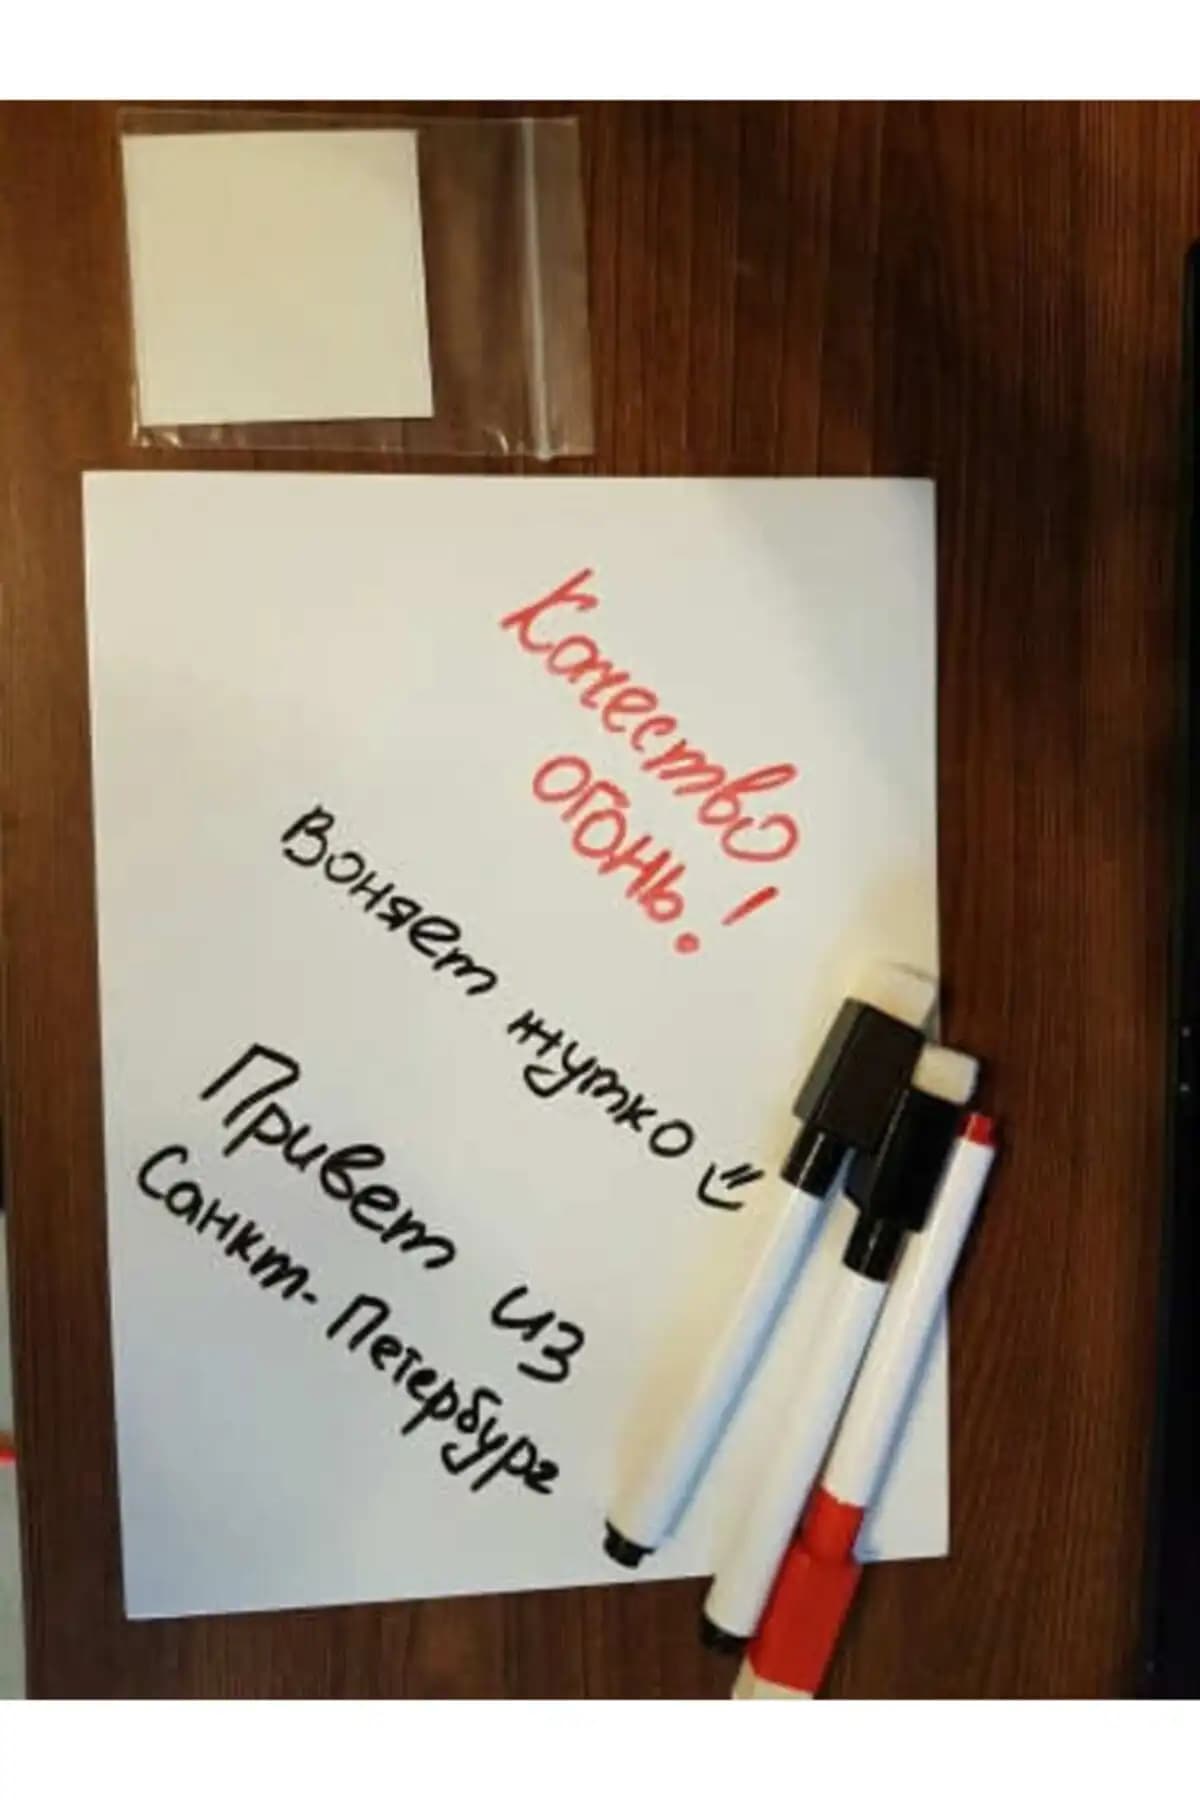 Качество
огонь!
Воняет жутко
Привет из
Санкт-Петербург